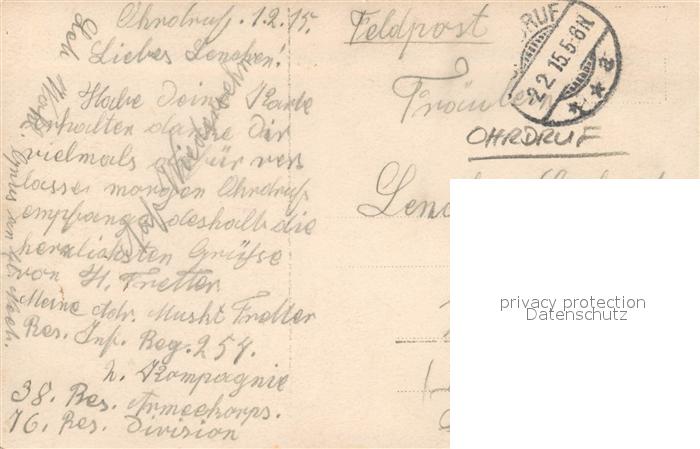 Ohrdruf. 1.2.15.
Liebes Lenchen!
Habe Deine Karte
erhalten danke Dir
vielmals dafür ver
lasse morgen Ohrdruf
empfange deshalb die
herzlichsten Grüße
von H. Fretter
Meine Adr. Muskt Fretter
Res. Inf. Reg. 254.
2. Kompagnie
38. Res. Armeekorps.
76. Res. Division
Auf Wiedersehn
Leb Wohl
Feldpost
DRUF
2.2.15.5-6N
a
Fräulein
OHRDRUF
privacy protection
Datenschutz